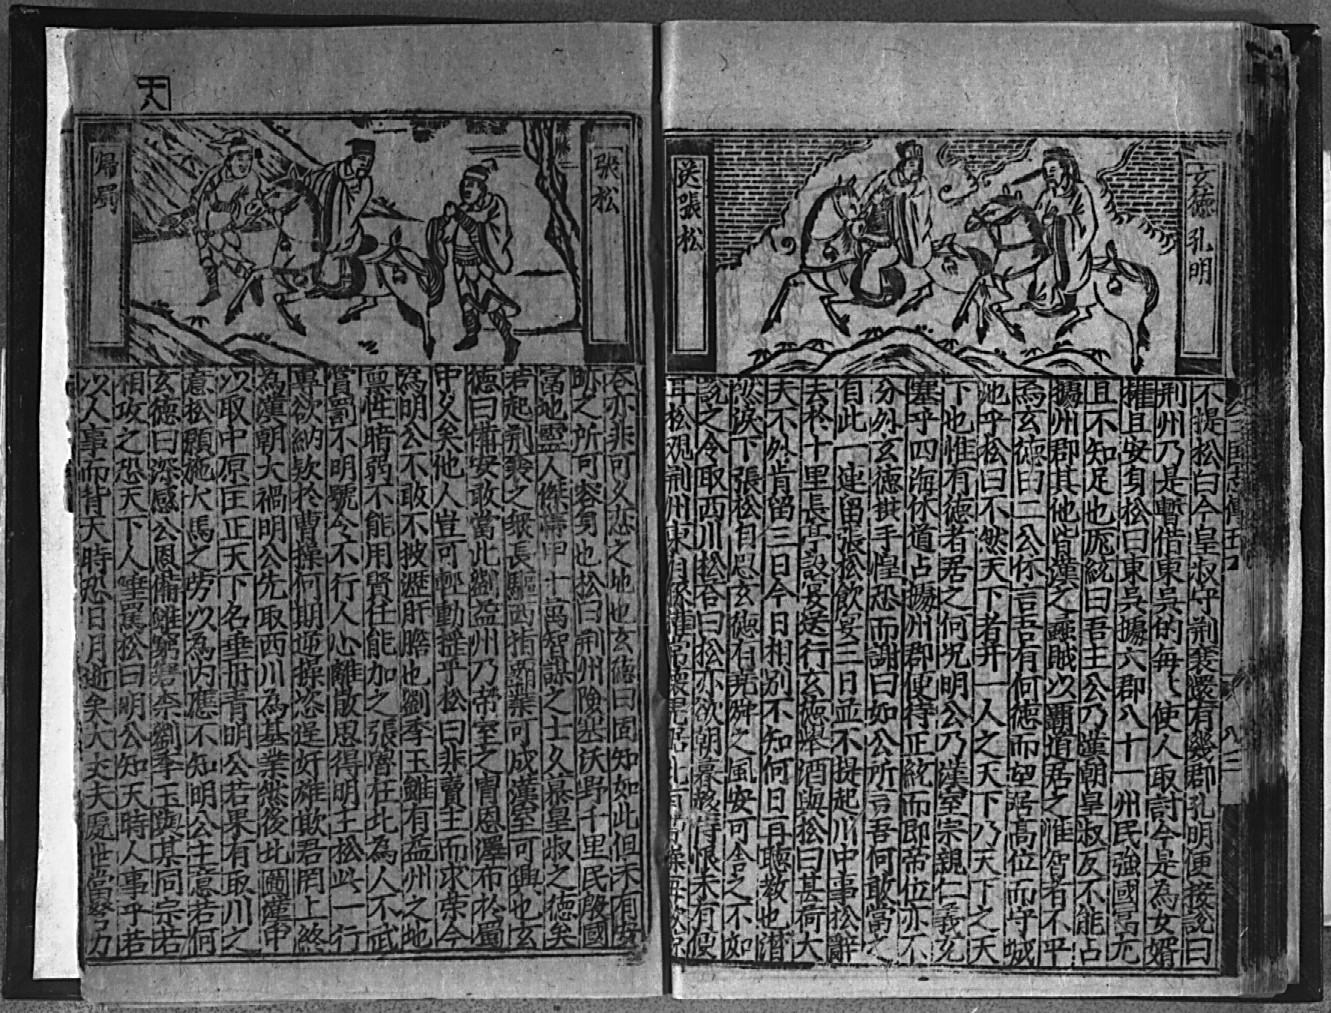 玄德孔明
送張松
不提松曰今皇叔守荆襄還有幾郡孔明便接說曰
荆州乃是暫借東吳的每〻使人取討今是為女婿
權且安身松曰東吳據六郡八十一州民強國富尤
且不知足也龐統曰吾主公乃漢朝皇叔反不能占
據州郡其他皆漢之蟊賊以霸道居之惟智者不平
焉玄德曰二公休言吾有何德而望居高位而守城
池乎松曰不然天下者非一人之天下乃天下之天
下也惟有德者居之何况明公乃漢室宗親仁義充
塞乎四海休道占據州郡便待正統而即帝位亦不
分外玄德拱手惶恐而謝曰如公所言吾何敢當之
自此一連留張松飲宴三日並不提起川中事松辭
去於十里長亭設宴送行玄德舉酒與松曰甚荷大
夫不外肯留三日今日相別不知何日再聽教也潸
然淚下張松自思玄德有堯舜之風安可舍之不如
說之令取西川松答曰松亦欲朝暮趨侍恨未有便
耳松觀荆州東有孫權
張松
歸蜀
吞亦非可久戀之地也玄德曰固知如此但未有安
跡之所可容身也松曰荆州險塞沃野千里民殷國
富地靈人傑帶甲十萬智謀之士久慕皇叔之德矣
若起荆襄之衆長驅西指霸業可成漢室可興也玄
德曰備安敢當此劉益州乃帝室之胄恩澤布於蜀
中久矣他人豈可輕動搖乎松曰非賣主而求榮今
為明公不敢不披瀝肝膽也劉季玉雖有益州之地
稟性暗弱不能用賢任能加之張魯在北為人不武
賞罰不明號令不行人心離散思得明主松此一行
專欲納欵於曹操何期逆操恣逞奸雄欺君罔上終
為漢朝大禍明公先取西川為基業然後北圖漢中
以取中原匡正天下名垂丗青明公若果有取川之
意松願施犬馬之勞以為內應不知明公主意若何
玄德曰深感公恩備雖窮窘奈劉季玉與某同宗若
相攻之恐天下人唾罵松曰明公知天時人事乎若
以人事而背天時恐日月逝矣大丈夫處世當努力